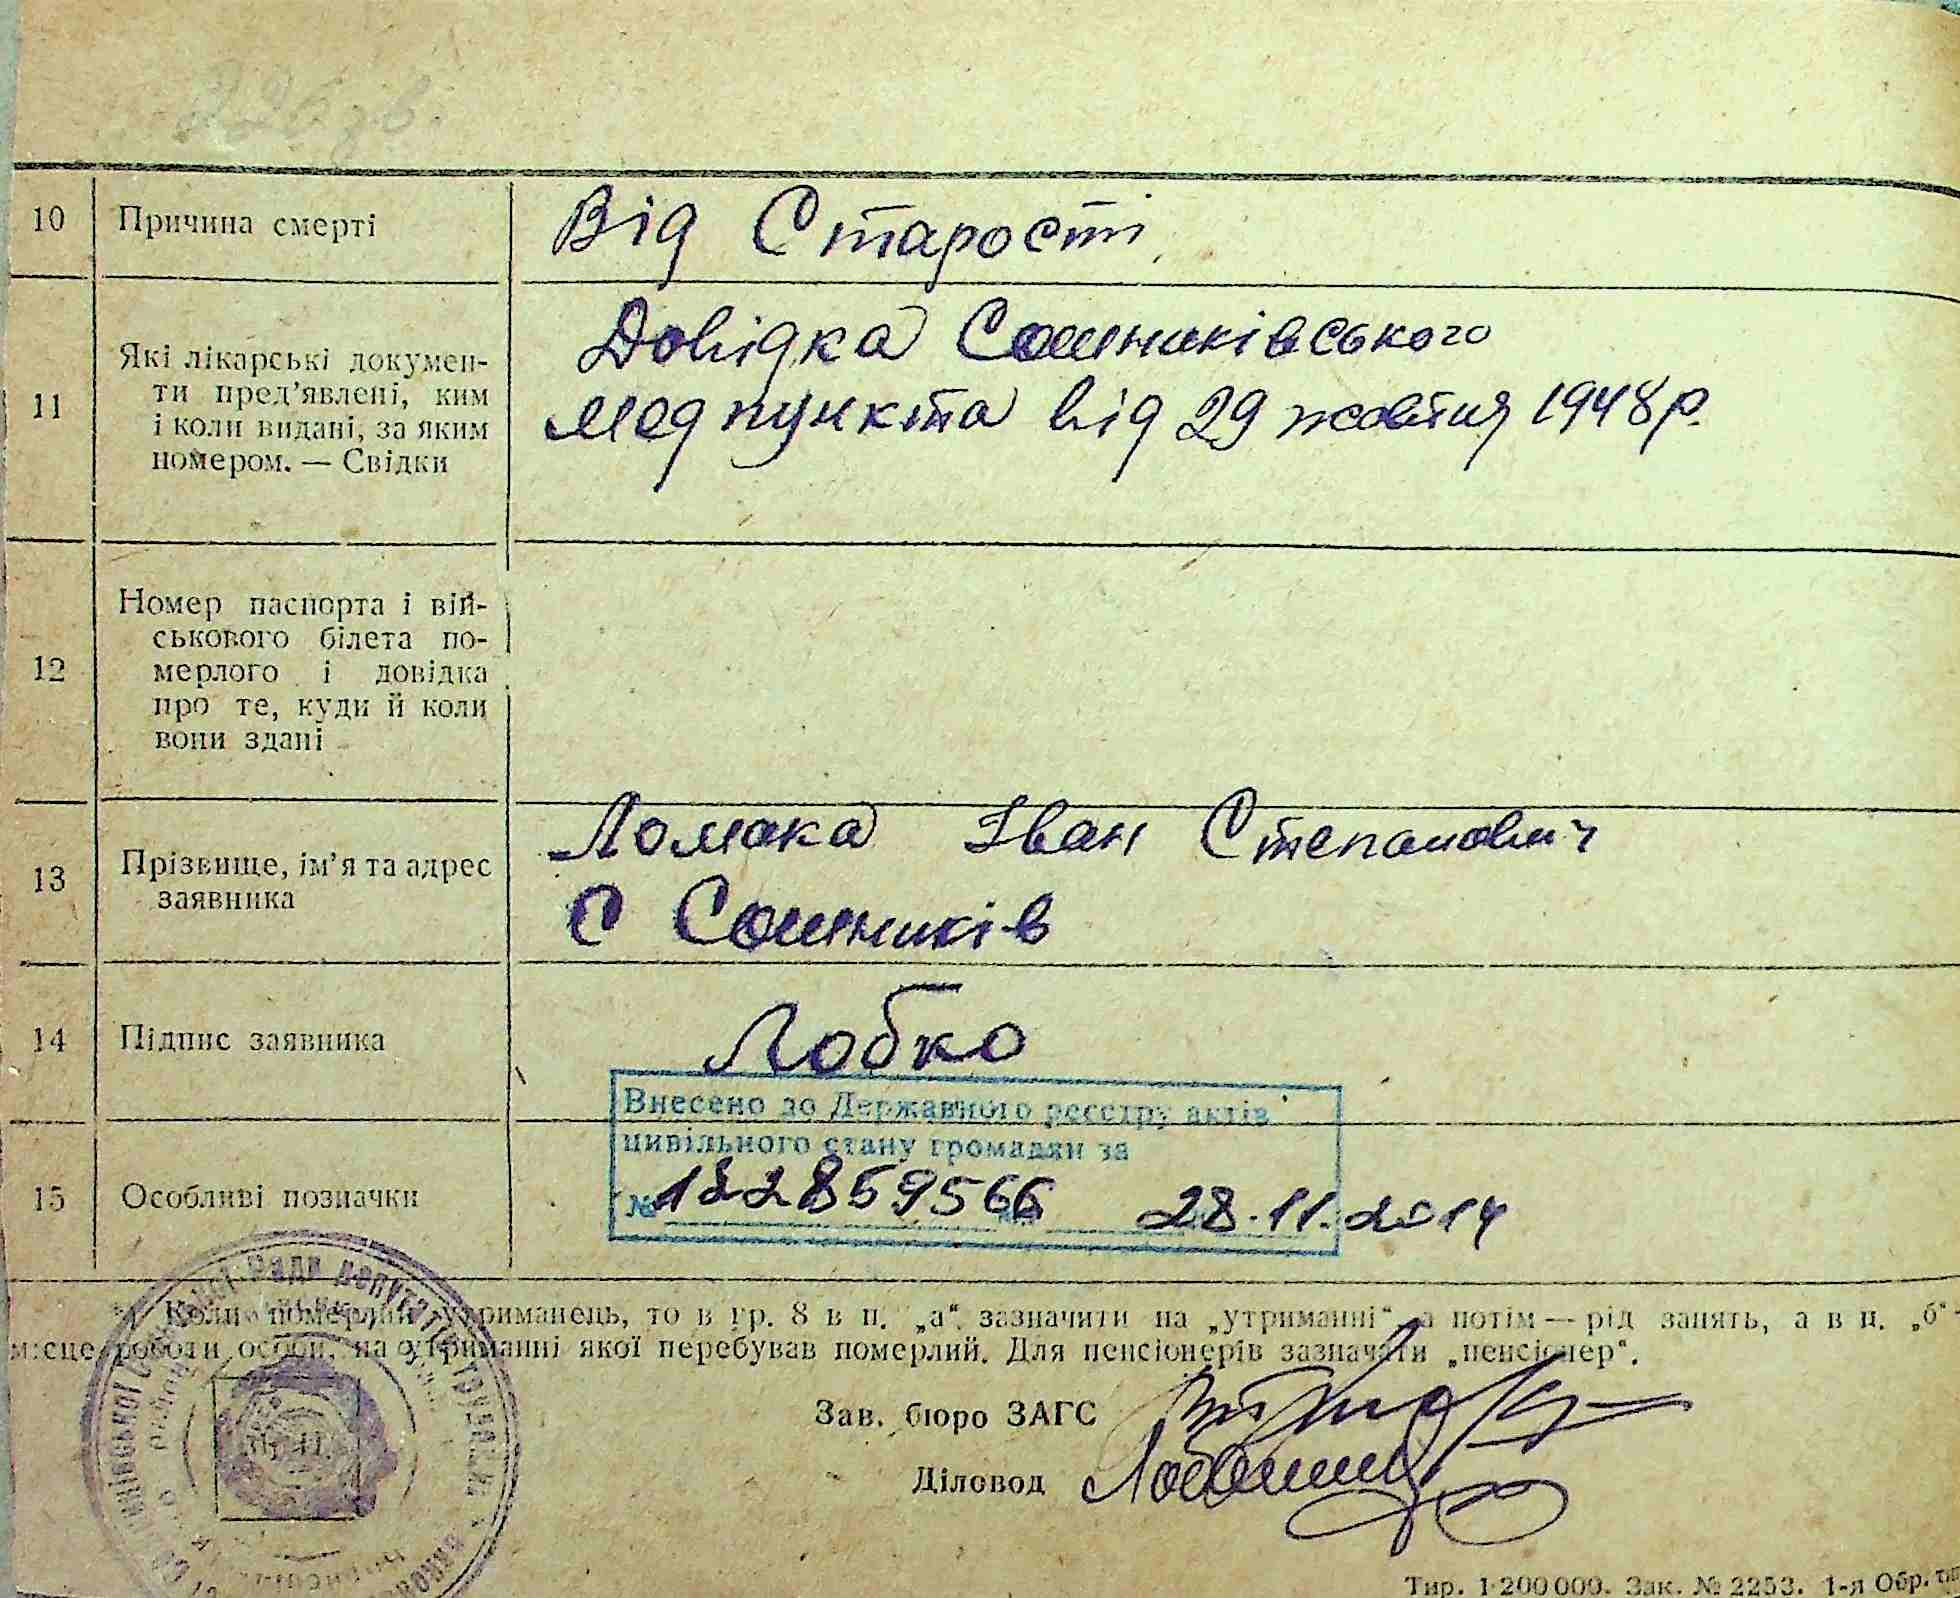 226 зв.
10 Причина смерті Від Старості
11 Які лікарські докумен-
ти пред'явлені, ким
і коли видані, за яким
номером. — Свідки
Довідка Сошниківського
Медпункта від 29 жовтня 1948 р.
12 Номер паспорта і вій-
ськового білета по-
мерлого і довідка
про те, куди й коли
вони здані
13 Прізвище, ім'я та адрес
заявника
Ломака Іван Степанович
с Сошників
14 Підпис заявника Лобко
15 Особливі позначки
Внесено до Державного реєстру актів
цивільного стану громадян за
№ 122859566 28.11.2014
*) Коли померлий утриманець, то в гр. 8 в п. „а“ зазначити на „утриманні“, а потім — рід занять, а в п. „б“ -
місце роботи особи, на утриманні якої перебував померлий. Для пенсіонерів зазначати „пенсіонер“.
Зав. бюро ЗАГС
Діловод
Тир. 1 200 000. Зак. № 2253. 1-я Обр. тип